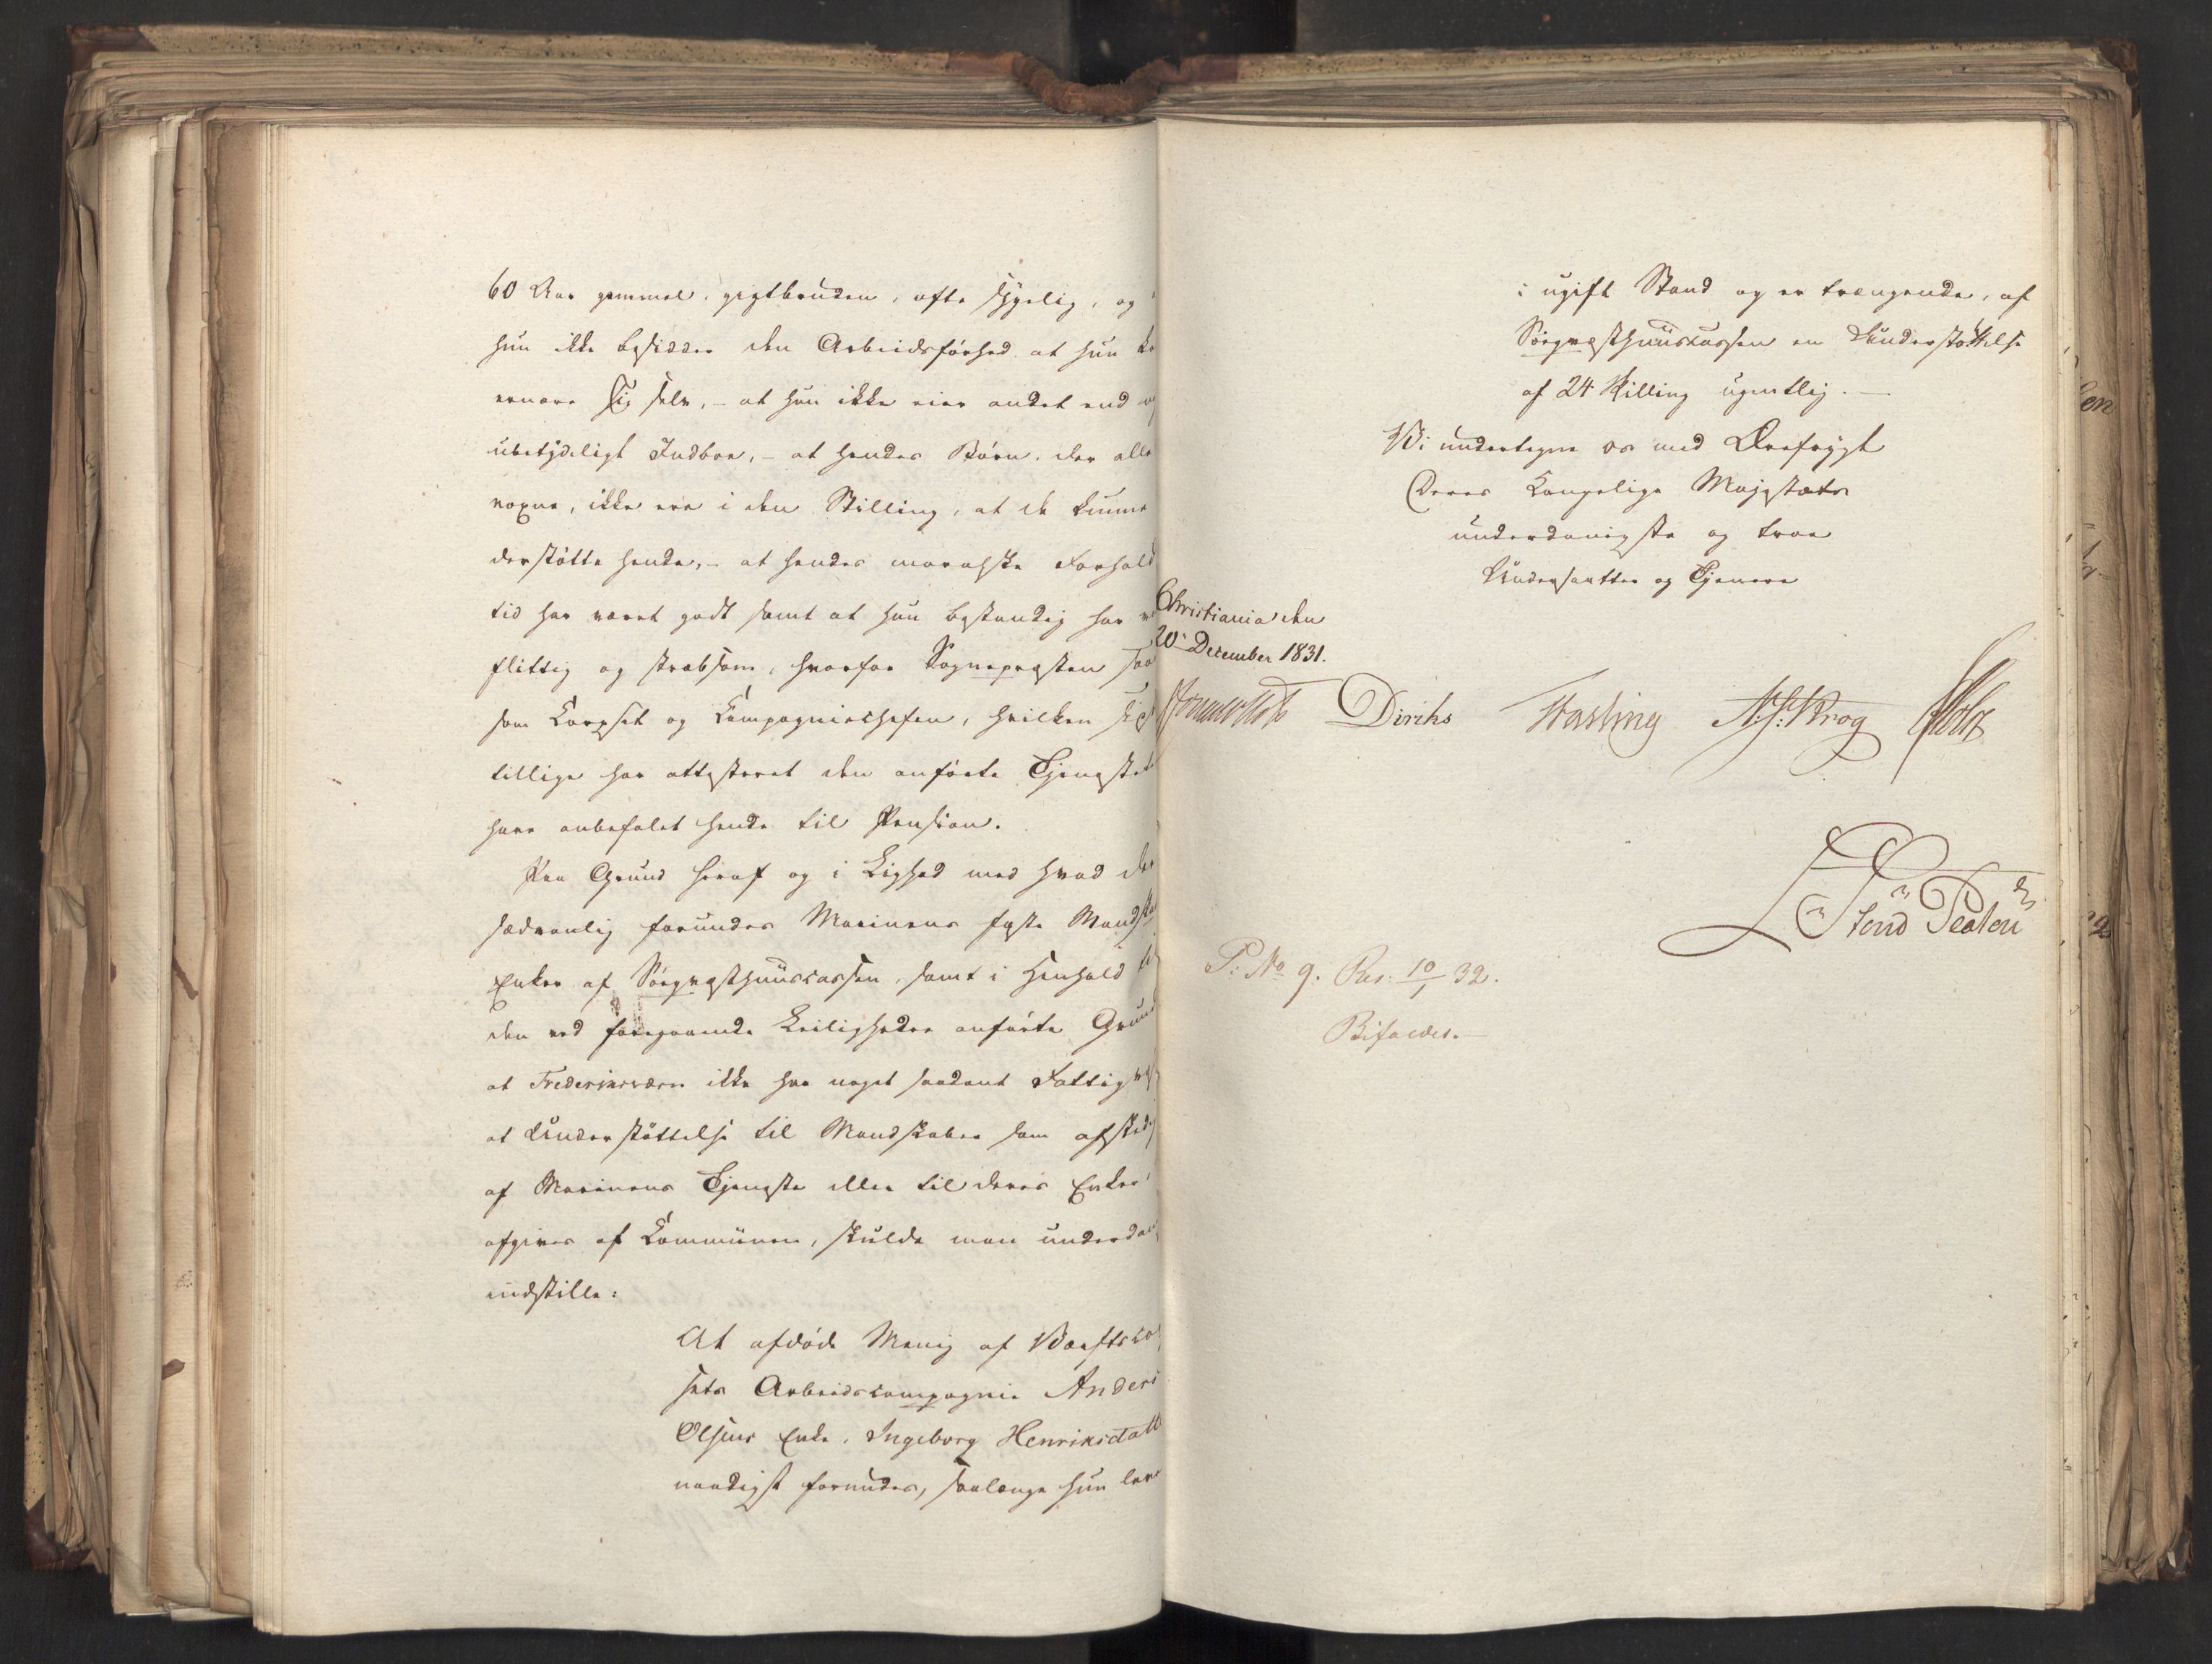 60 Aar gammel, gigtbruden, ofte sygelig, og
hun ikke besidder den Arbeidsførhed at hun
ernære sig selv, – at hun ikke eier andet end
ubetydeligt Indboe, – at hendes Børn, der alle
voxne, ikke ere i den Stilling, at de kunne
derstøtte hende, – at hendes moralske Forhold
tid har været godt samt at hun bestandig har
flittig og stræbsom, hvorfor Sognepræsten saa
som Corpset og Compagniechefen, hvilken
tillige har attesteret den anførte Tjeneste
have anbefalet hende til Pension.
Paa Grund heraf og i Lighed med hvad der
sædvanlig forundes Marinens faste Mandska
Enker af Søeqvæsthuuscassen, samt i Henhold til
den ved foregaaende Leiligheder anførte Grund
at Frederiksværn ikke har noget saadant Fattigvæs
at Understøttelse til Mandskaber som afskedig
af Marinens Tjeneste eller til deres Enker
afgives af Communen, skulde man underdan
indstille:
At afdøde Menig af Værftscor
sets Arbeidscompagnie Anders
Olsens Enke, Ingeborg Henriksdatt
naadigst forundes, saalænge hun leve
i ugift Stand og er trængende, af
Søeqvæsthuuscassen en Understøttelse
af 24 Skilling ugentlig. –
Vi undertegne os med Ærefrygt
Deres Kongelige Majestæts
underdanigste og troe
Undersaatter og Tjenere
Christiania den
20 December 1831.
Sommerfeldt Diriks Fasting A. S. Krog Holst
P: No 9. Res: 10/1 32.
Bifaldes. –